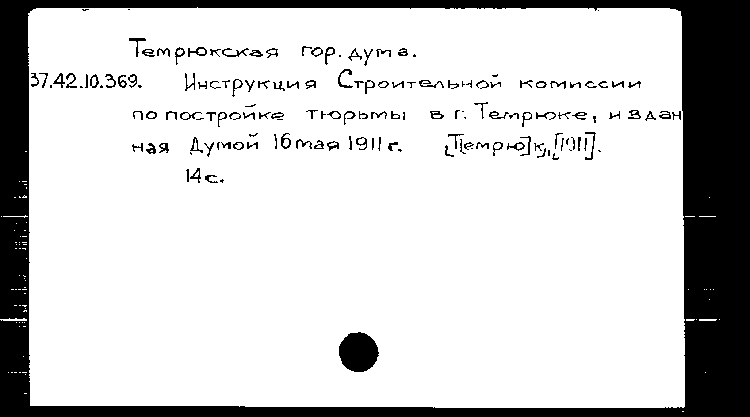 Темрюкская гор. дума.
37.42.10.369. Инструкция Строительной комиссии
по постройке тюрьмы в г. Темрюке, издан
ная Думой 16 мая 1911 г. [Темрю]к, [1911].
14 с.